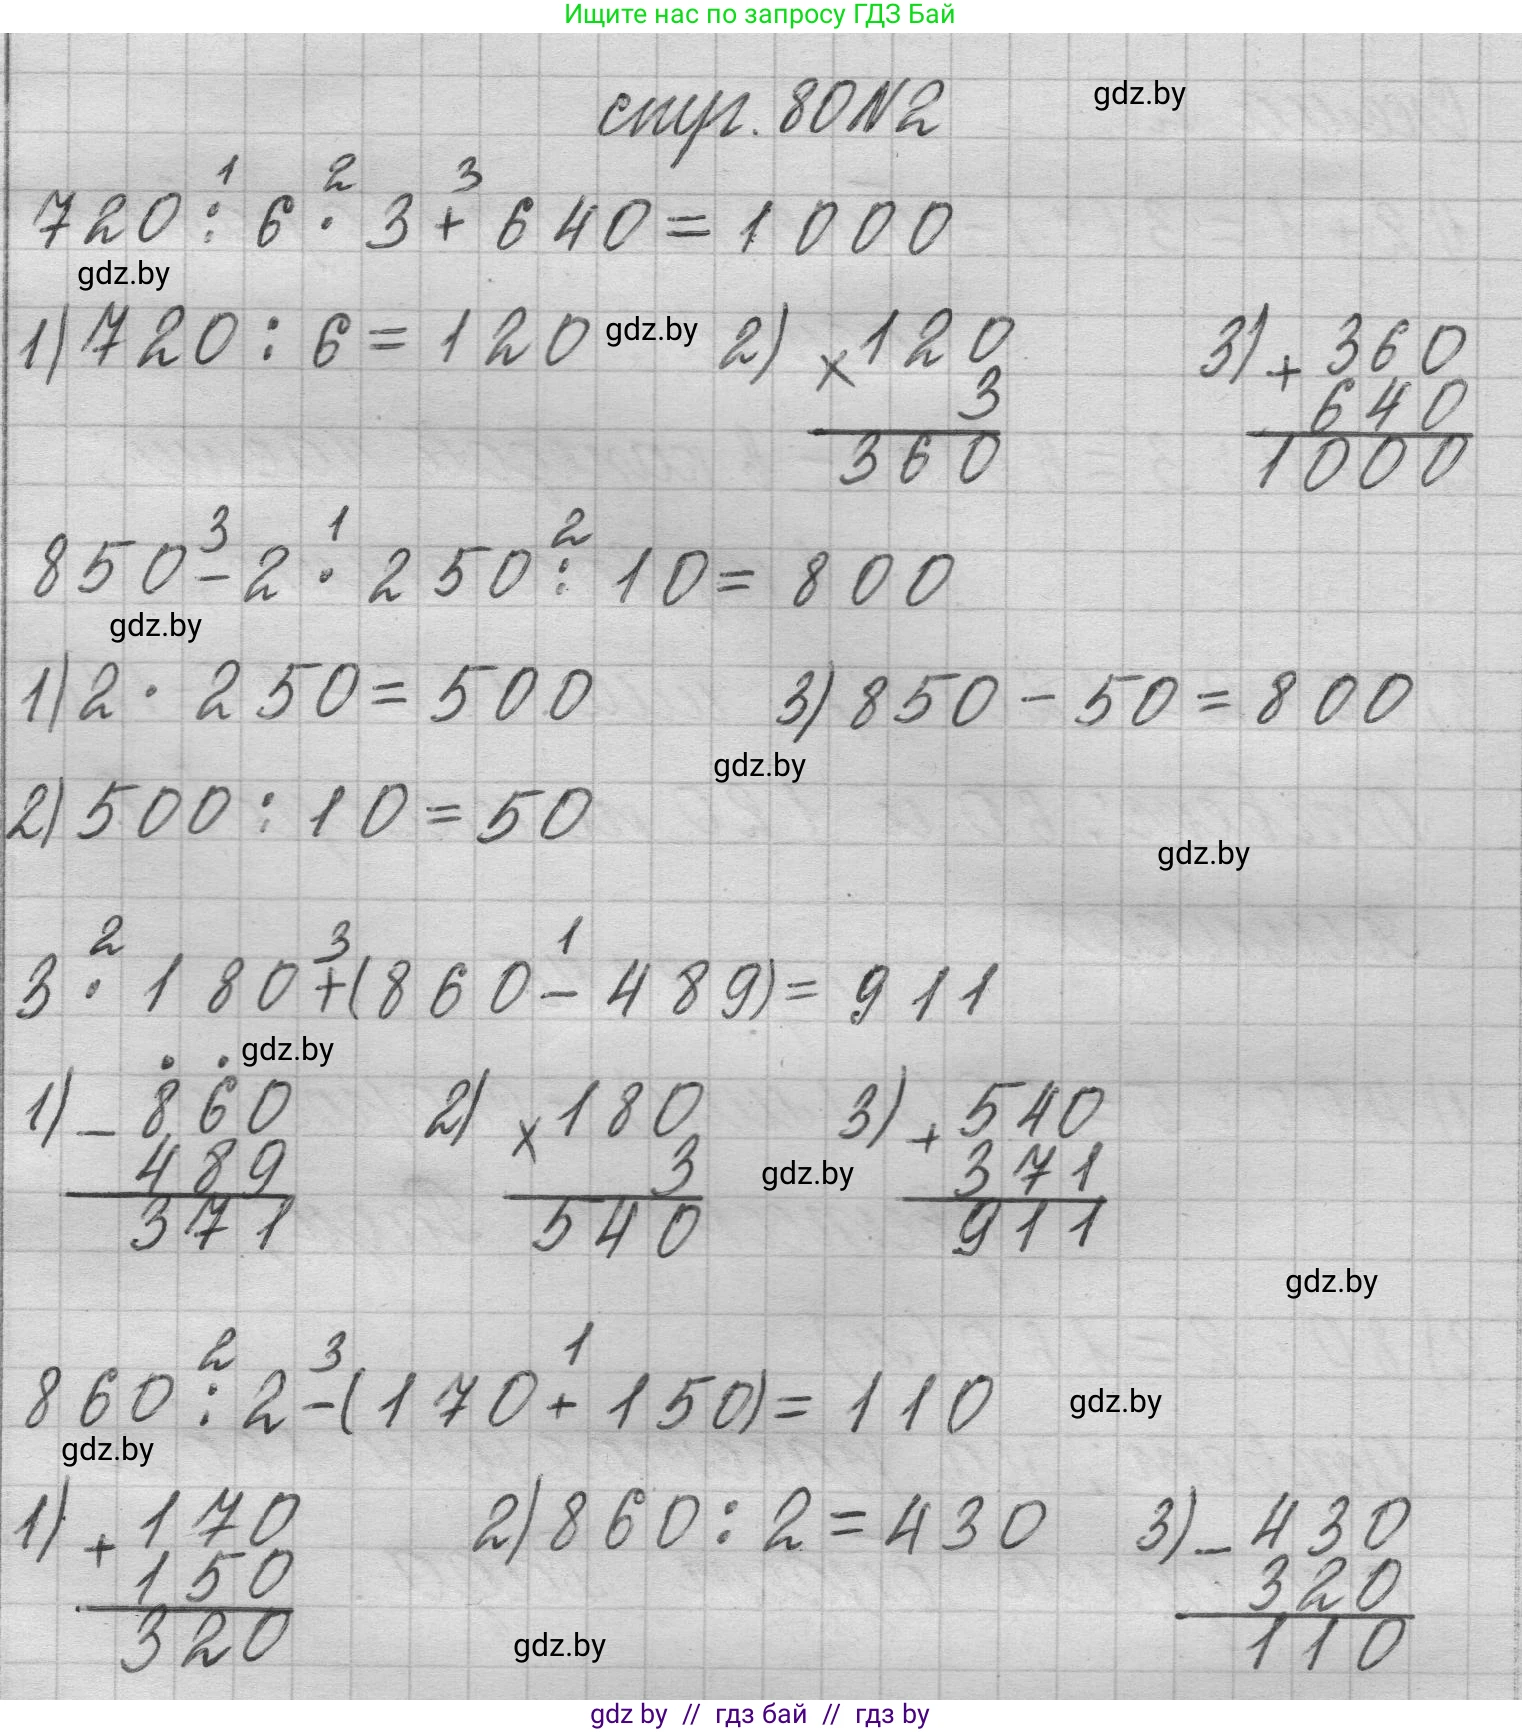 Ищите нас по запросу ГДЗ Бай
стр. 80 N2
gdz.by
1 2 3
720 : 6 · 3 + 640 = 1000
gdz.by
1) 720 : 6 = 120
gdz.by
2) × 120
3
360
3) + 360
640
1000
3 1 2
850 - 2 · 250 : 10 = 800
gdz.by
1) 2 · 250 = 500
3) 850 - 50 = 800
gdz.by
2) 500 : 10 = 50
gdz.by
2 3 1
3 · 180 + (860 - 489) = 911
gdz.by
1) - 860
489
371
2) × 180
3
540
gdz.by
3) + 540
371
911
gdz.by
2 3 1
860 : 2 - (170 + 150) = 110
gdz.by
gdz.by
1) + 170
150
320
2) 860 : 2 = 430
3) - 430
320
110
gdz.by
gdz by // гдз бай // гдз by